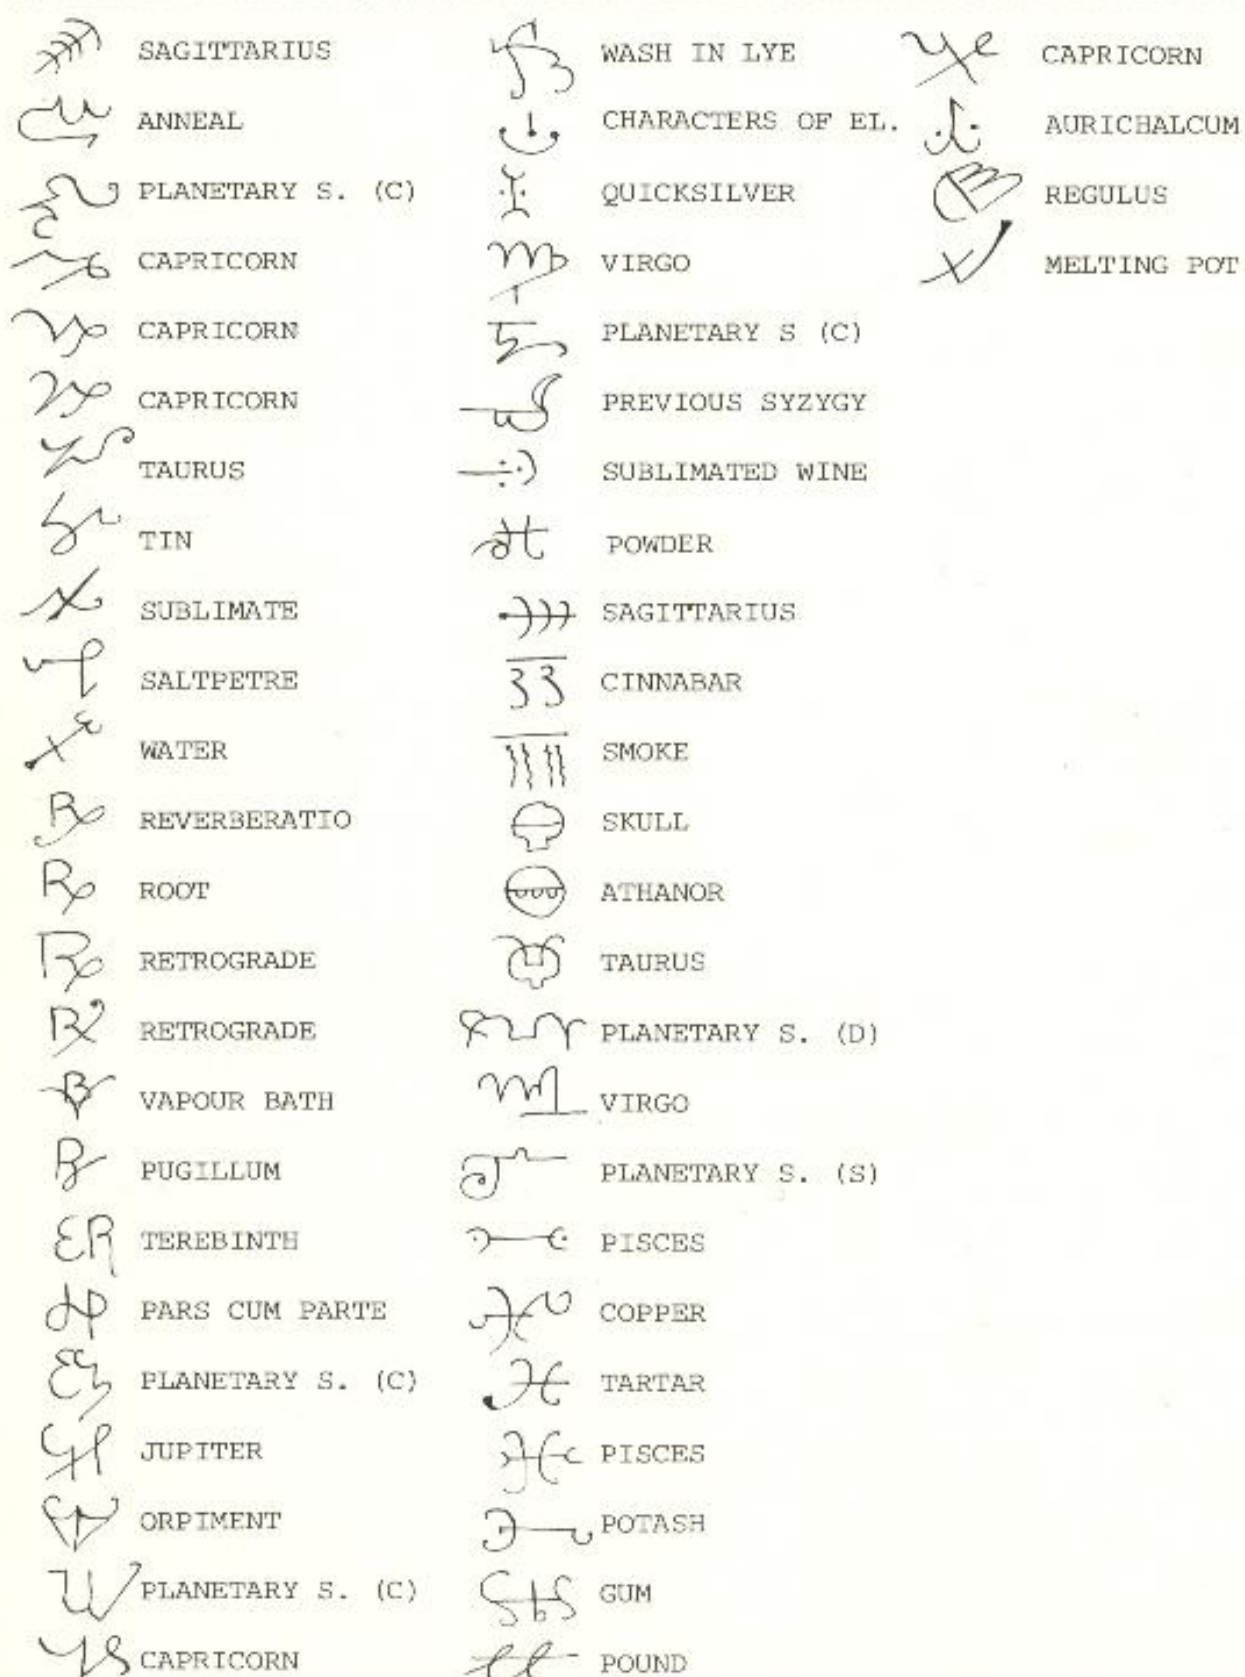 SAGITTARIUS
ANNEAL
PLANETARY S. (C)
CAPRICORN
CAPRICORN
CAPRICORN
TAURUS
TIN
SUBLIMATE
SALTPETRE
WATER
REVERBERATIO
ROOT
RETROGRADE
RETROGRADE
VAPOUR BATH
PUGILLUM
TEREBINTH
PARS CUM PARTE
PLANETARY S. (C)
JUPITER
ORPIMENT
PLANETARY S. (C)
CAPRICORN
WASH IN LYE
CHARACTERS OF EL.
QUICKSILVER
VIRGO
PLANETARY S (C)
PREVIOUS SYZYGY
SUBLIMATED WINE
POWDER
SAGITTARIUS
CINNABAR
SMOKE
SKULL
ATHANOR
TAURUS
PLANETARY S. (D)
VIRGO
PLANETARY S. (S)
PISCES
COPPER
TARTAR
PISCES
POTASH
GUM
POUND
CAPRICORN
AURICHALCUM
REGULUS
MELTING POT